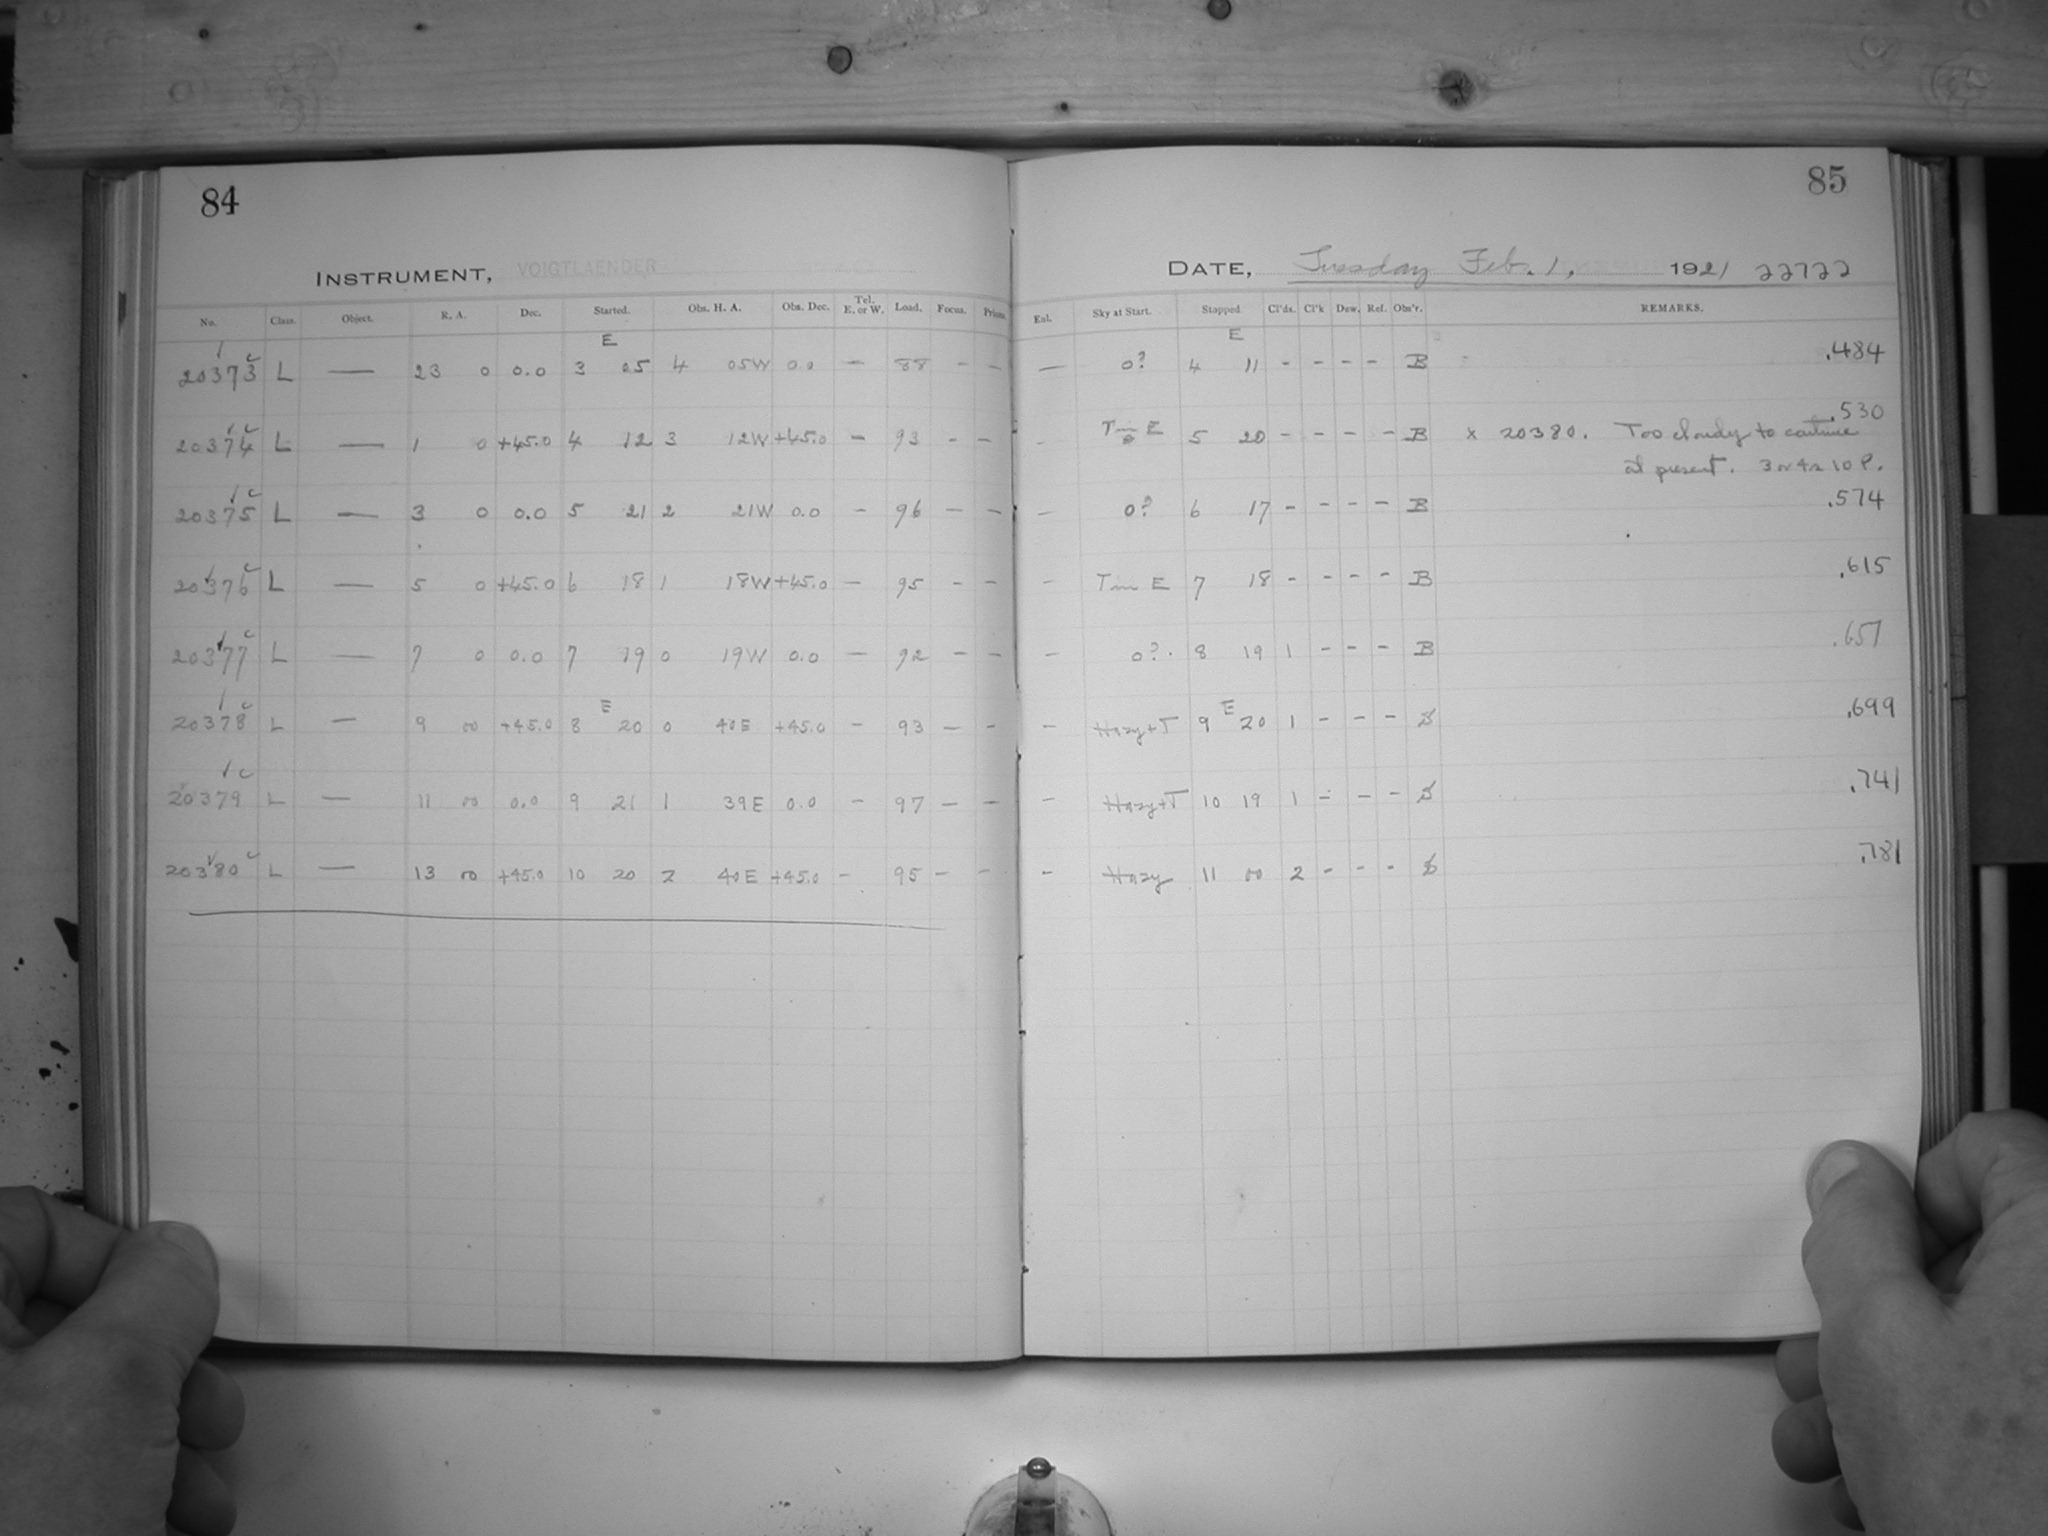 84
85
INSTRUMENT, VOIGTLAENDER
DATE, Tuesday Feb. 1, 1921 22722
No. Class. Object. R. A. Dec. Started. Obs. H. A. Obs. Dec. Tel. E. or W. Load. Focus. Prisms.
Ext. Sky at Start. Stopped Cl'ds. Cl'k Dew. Ref. Obs'r. REMARKS.
E E
20373 L — 23 0 0.0 3 05 4 05W 0.0 — 88 – – — 0? 4 11 - - - - B .484
20374 L — 1 0 +45.0 4 12 3 12W +45.0 – 93 - – - E 5 20 - - - - B × 20380. Too cloudy to continue .530
at present. 3 or 4 a 10 P.
20375 L — 3 0 0.0 5 21 2 21W 0.0 – 96 – – – 0? 6 17 - - - - B .574
20376 L — 5 0 +45.0 6 18 1 18W +45.0 – 95 - – – E 7 18 - - - - B .615
20377 L — 7 0 0.0 7 19 0 19W 0.0 – 92 – – – 0?. 8 19 1 - - - B .657
E E
20378 L — 9 00 +45.0 8 20 0 40E +45.0 – 93 – – – Hazy+T 9 20 1 - - - .699
20379 L — 11 00 0.0 9 21 1 39E 0.0 – 97 – – – Hazy+T 10 19 1 - - - .741
20380 L — 13 00 +45.0 10 20 2 40E +45.0 – 95 – – – Hazy 11 00 2 - - - .781